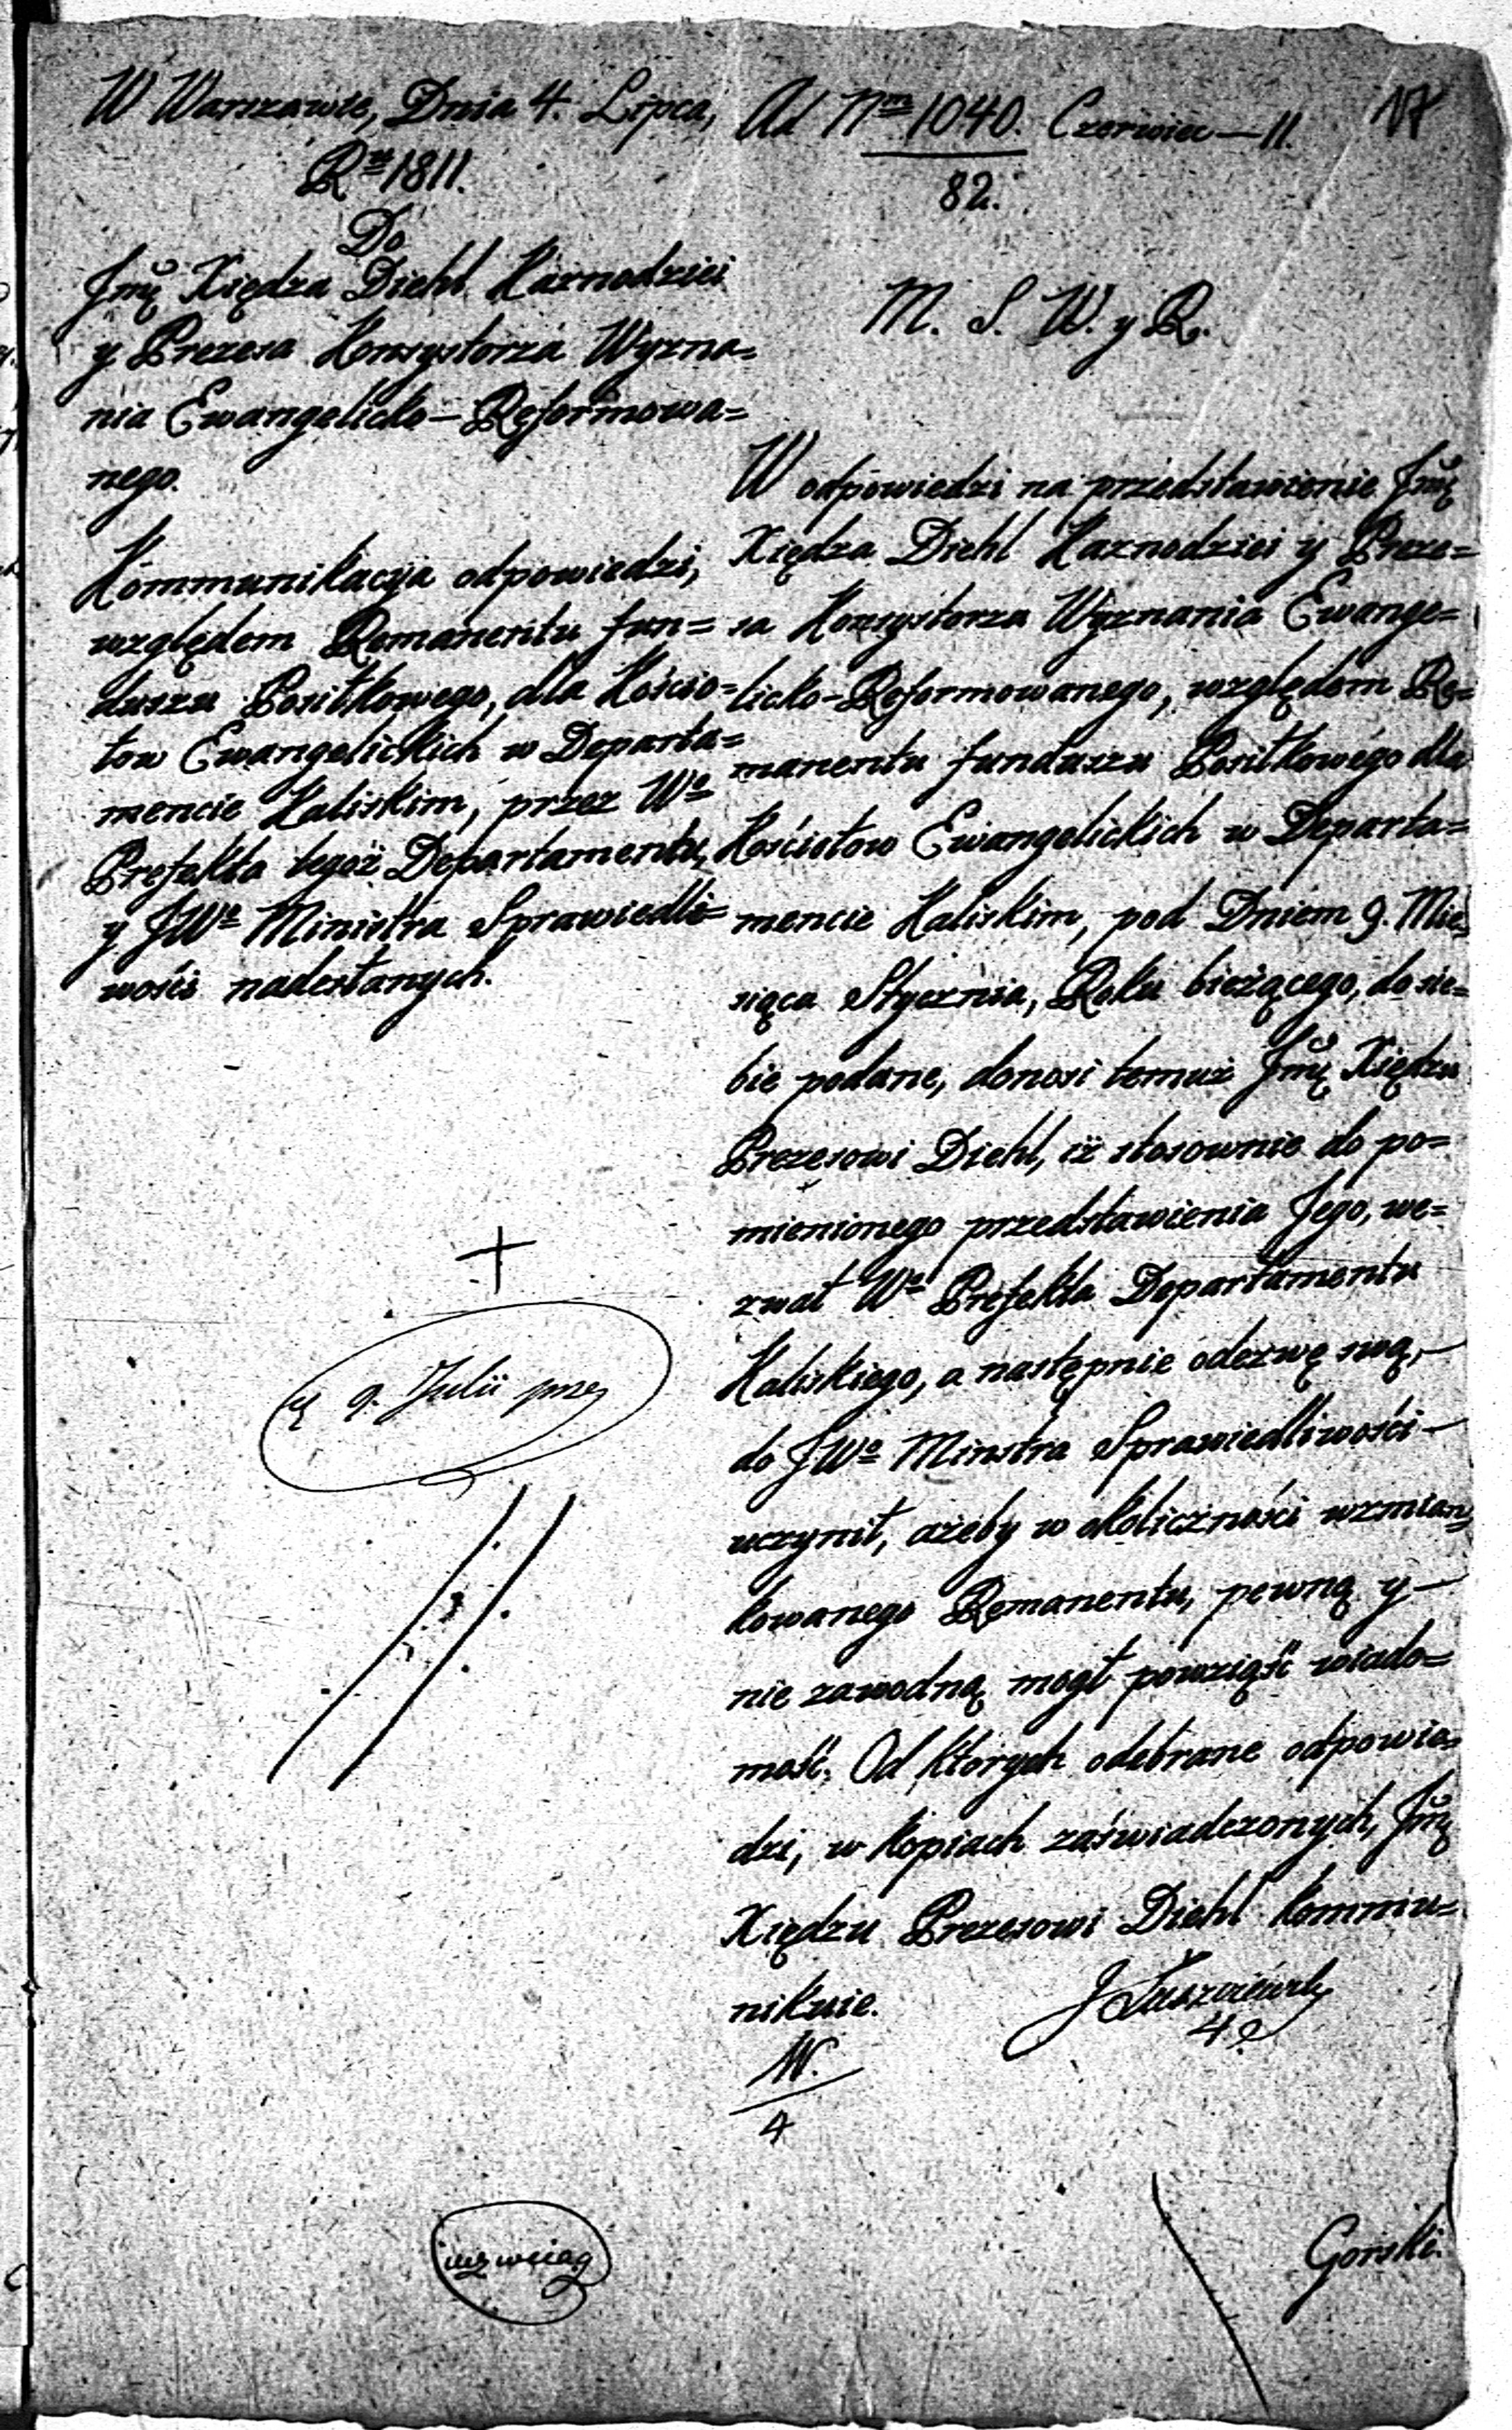 W Warszawie, Dnia 4. Lipca,
Ru 1811.
Do
Jmć Xiędza Diehl Kaznodziei
y Prezesa Konsystorza Wyzna=
nia Ewangelicko-Reformowa=
nego.
Kommunikacya odpowiedzi,
względem Remanentu fun=
duszu Posiłkowego, dla Kościo=
łow Ewangelickich w Departa=
mencie Kaliskim, przez Wo
Prefekta tegoż Departamentu,
y JWo Ministra Sprawiedli=
wości nadesłanych.
+
9. Julii
Ad Nm 1040. Czerwiec — 11.
82.
17
M. S. W. y R.
W odpowiedzi na przedstawienie Jmć
Xiędza Diehl Kaznodziei y Preze=
sa Konsystorza Wyznania Ewange=
licko-Reformowanego, względem Re=
manentu funduszu Posiłkowego dla
Kościołow Ewangelickich w Departa=
mencie Kaliskim, pod Dniem 9. Mie=
siąca Stycznia, Roku bieżącego, do sie=
bie podane, donosi temuż Jmć Xiędzu
Prezesowi Diehl, iż stosownie do po=
mienionego przedstawienia Jego, we=
zwał Wo Prefekta Departamentu
Kaliskiego, a następnie odezwę swą,—
do JWo Minstra Sprawiedliwości—
uczynił, ażeby w okoliczności wzmian=
kowanego Remanentu, pewną y—
nie zawodną mogł powziąść wiado=
mość. Od ktorych odebrane odpowie=
dzi, w kopiach zaświadczonych, Jmć
Xiędzu Prezesowi Diehl kommu=
nikuie.
J Łuszczewski
4
W.
4
Gorski.